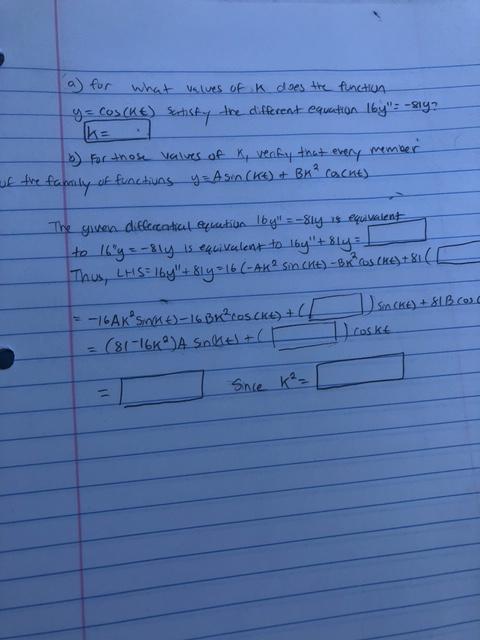 a) for what values of k does the function
y = cos(kt) satisfy the different equation 16y'' = -81y?
k=
b) For those values of k, verify that every member
of the family of functions y = A sin(kt) + Bk² cos(kt)
The given differential equation 16y'' = -81y is equivalent
to 16''y = -81y is equivalent to 16y'' + 81y =
Thus, LHS = 16y'' + 81y = 16(-Ak² sin(kt) - Bk² cos(kt) + 81(
= -16Ak² sin(kt) - 16Bk² cos(kt) + ( ) sin(kt) + 81B cos(
= (81-16k²)A sin(kt) + ( ) cos kt
= Since k² =